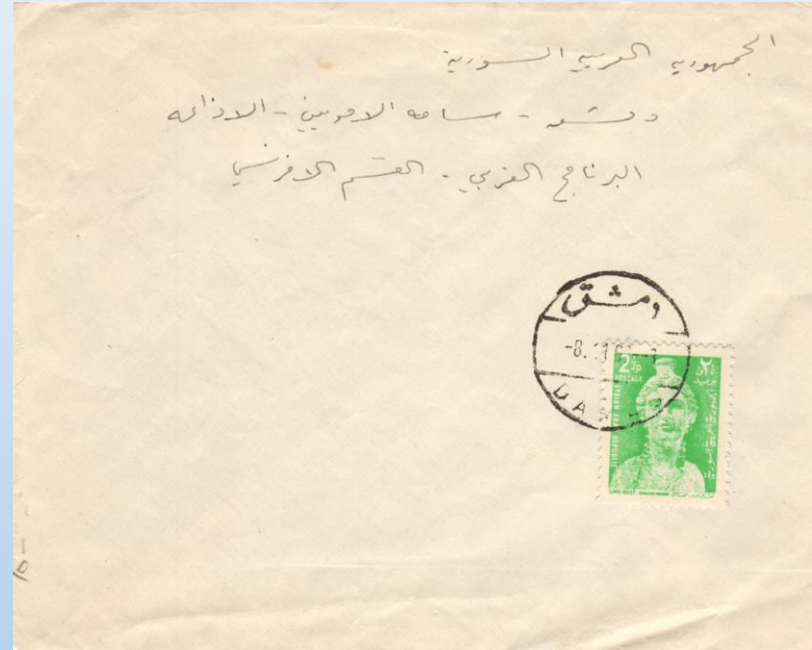 الجمهورية العربية السورية
دمشق - ساحة الامويين - الاذاعه
البرنامج الغربي - القسم الافرنسي
دمشق
-8.
DAMAS
2½P
POSTAGE
SYRIAN ARAB REPUBLIC